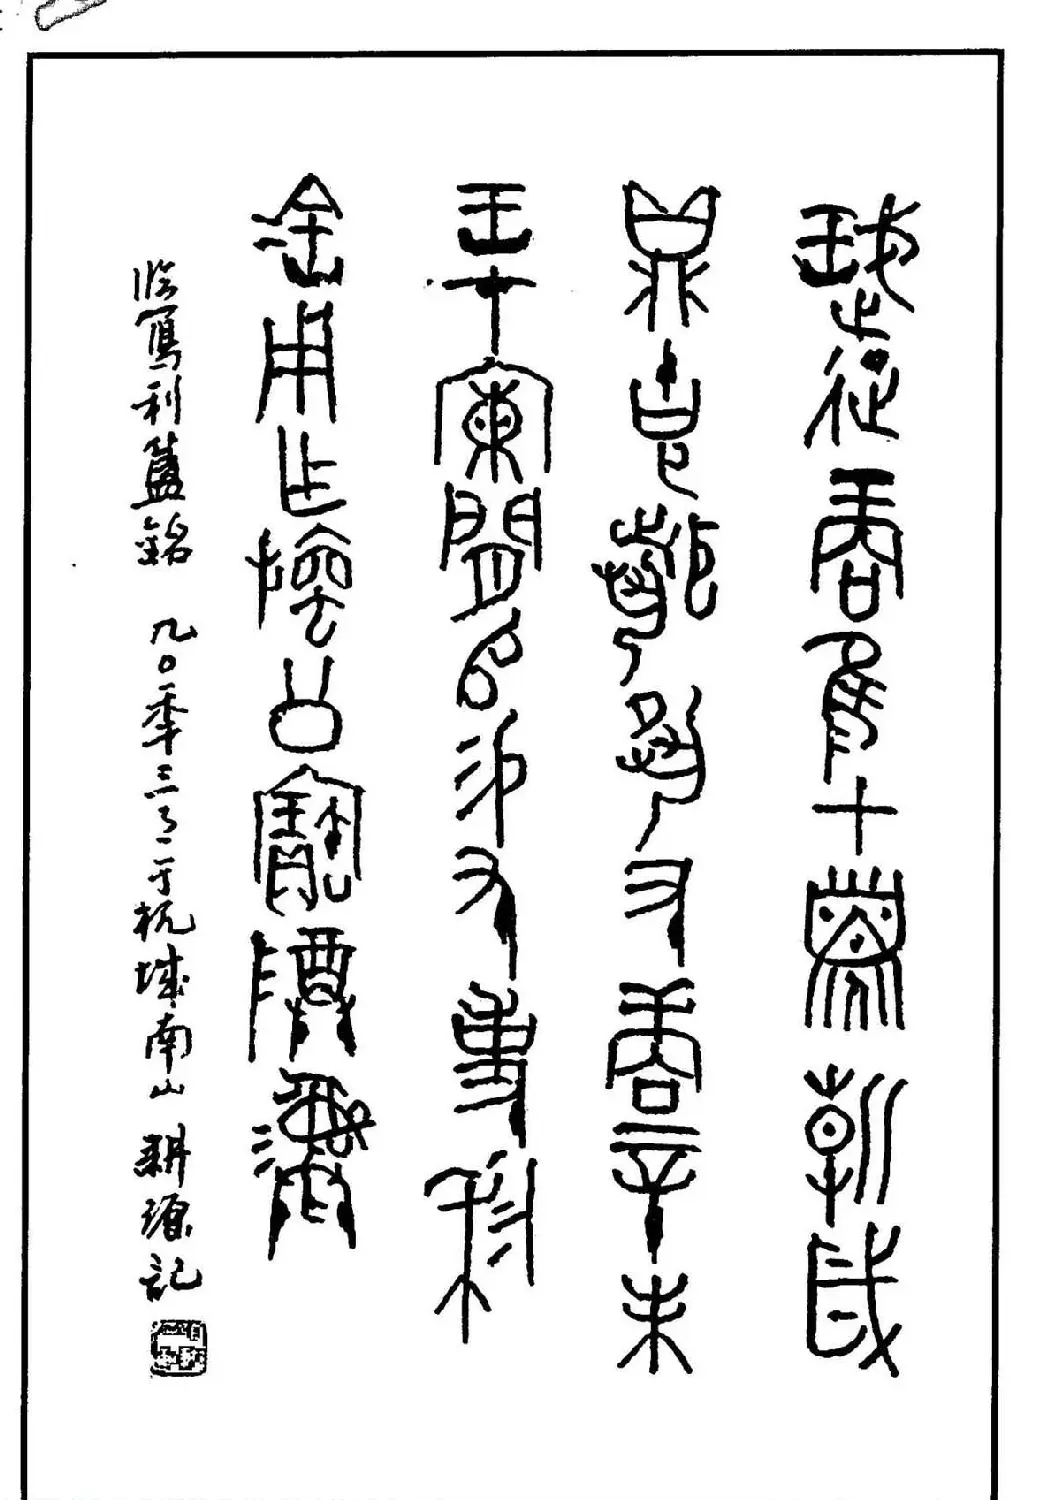 珷征商隹甲子朝歲
鼎克聞夙又商辛未
王才闌𠂤易又事利
金用乍旜公寶尊彝
临寫利簋銘 九〇年三月二于杭城南山 耕源記